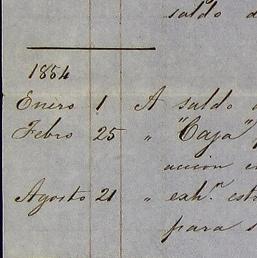 saldo d
1854
Enero 1 A saldo d
Febro 25 " "Caja"
accion e
Agosto 21 " exh.n est
para s